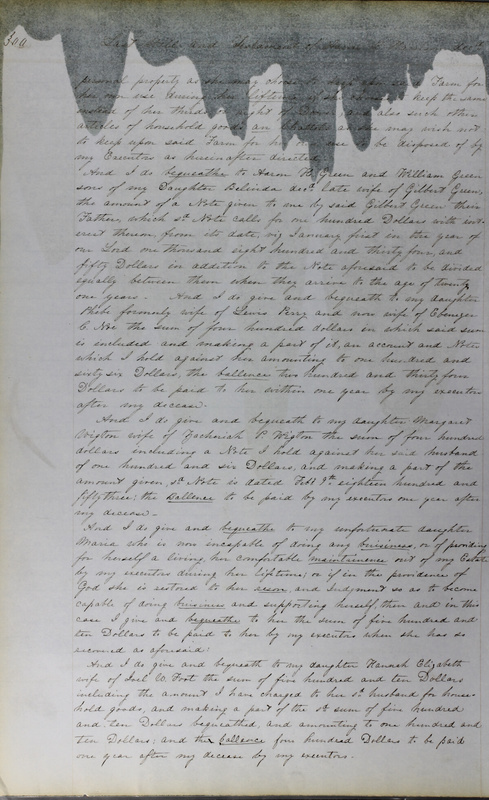 300
Last Will and Testament
personal property as she may chose to Farm for
her own use during her lifetime keep the same
instead of her thirds right of also such other
articles of household goods an as she may wish not
to keep upon said Farm for her use to be disposed of by
my Executors as hereinafter directed
And I do begueathe to Aaron H. Green and William Green
sons of my Daughter Belinda decd. late wife of Gilbert Green,
the amount of a Note given to me by said Gilbert Green their
Father, which sd. Note calls for one hundred Dollars with int-
erest thereon from its date, viz January first in the year of
our Lord one thousand eight hundred and thirty four, and
fifty Dollars in addition to the Note aforesaid to be divided
equally between them when they arrive to the age of twenty
one years - And I do give and begueath to my daughter
Phebe formerly wife of Lewis Perry and now wife of Ebenezer
C. Noe the sum of four hundred dollars in which said sum
is included and makeing a part of it, an account and Notes
which I hold against her amounting to one hundred and
sixty six Dollars, the ballence two hundred and thirty four
Dollars to be paid to her within one year by my executors
after my decease -
And I do give and begueath to my daughter Margaret
Wigton wife of Zachariah P. Wigton the sum of four hundred
dollars including a Note I hold against her said husband
of one hundred and six Dollars, and making a part of the
amount given, sd. Note is dated Feb 9th eighteen hundred and
fifty three; the Ballence to be paid by my executors one year after
my decease -
And I do give and begueathe to my unfortunate daughter
Maria who is now incapable of doing any buisiness, or of providing
for herself a living, her comfortable maintainence out of my Estate
by my executors during her lifetime; or if in the providence of
God she is restored to her reson, and Judgment so as to become
capable of doing buisiness and supporting herself, then and in this
case I give and begueathe to her the sum of five hundred and
ten Dollars to be paid to her by my executors when she has so
recovered as aforesaid
And I do give and begueath to my daughter Hannah Elizabeth
wife of W. Fort the sum of five hundred and ten Dollars
including the amount I have charged to her sd. husband for house-
hold goods, and making a part of the sd. sum of five hundred
and ten Dollars begueathed, and amounting to one hundred and
ten Dollars; and the ballence four hundred Dollars to be paid
one year after my decease by my executors -